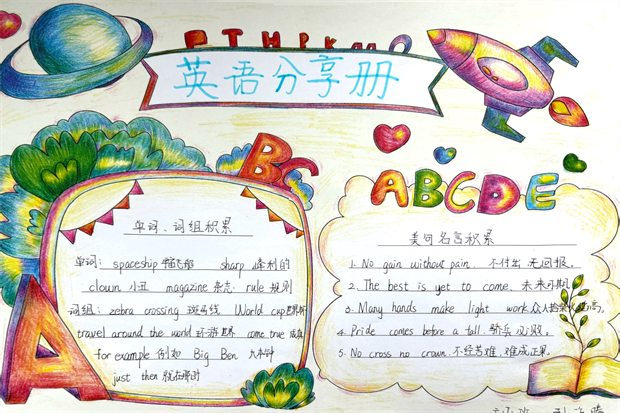 英语分享册
BC
ABCDE
A
单词、词组积累
单词: spaceship 宇宙飞船 sharp 锋利的
clown 小丑 magazine 杂志 rule 规则
词组: zebra crossing 斑马线 World cup 世界杯
travel around the world 环游世界 come true 成真
for example 例如 Big Ben 大本钟
just then 就在那时
美句名言积累
1. No gain without pain. 不付出无回报。
2. The best is yet to come. 未来不期
3. Many hands make light work 众人拾柴火焰高。
4. Pride comes before a fall. 骄兵必败。
5. No cross no crown. 不经苦难,难成正果。